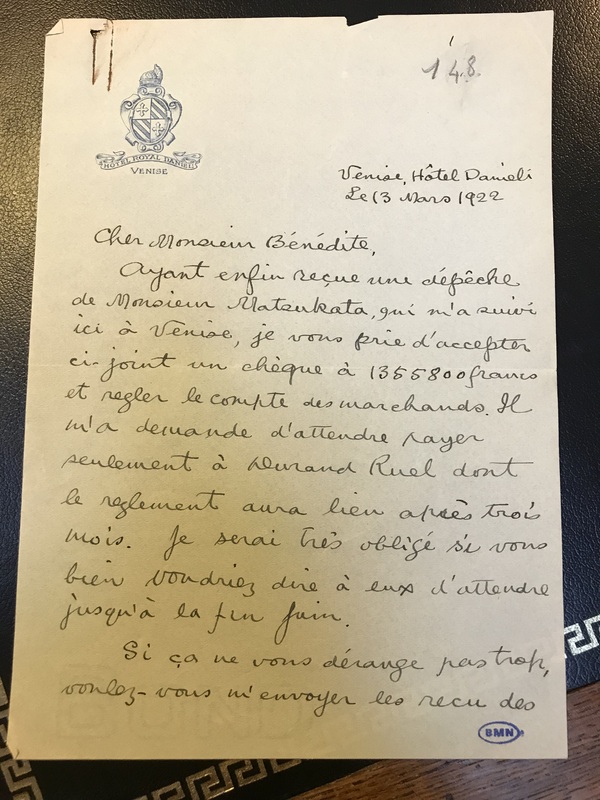 148
HOTEL ROYAL DANIELI
VENISE
Venise, Hôtel Danieli
Le 13 Mars 1922
Cher Monsieur Bénédite,
Ayant enfin reçue une dépêche
de Monsieur Matsukata, qui m'a suivi
ici à Venise, je vous prie d'accepter
ci-joint un chèque à 1355800 francs
et regler le compte des marchands. Il
m'a demande d'attendre payer
seulement à Durand Ruel dont
le reglement aura lieu après trois
mois. Je serai très obligé si vous
bien voudriez dire à eux d'attendre
jusqu'à la fin Juin.
Si ça ne vous dérange pas trop,
voulez-vous m'envoyer les recu des
BMN